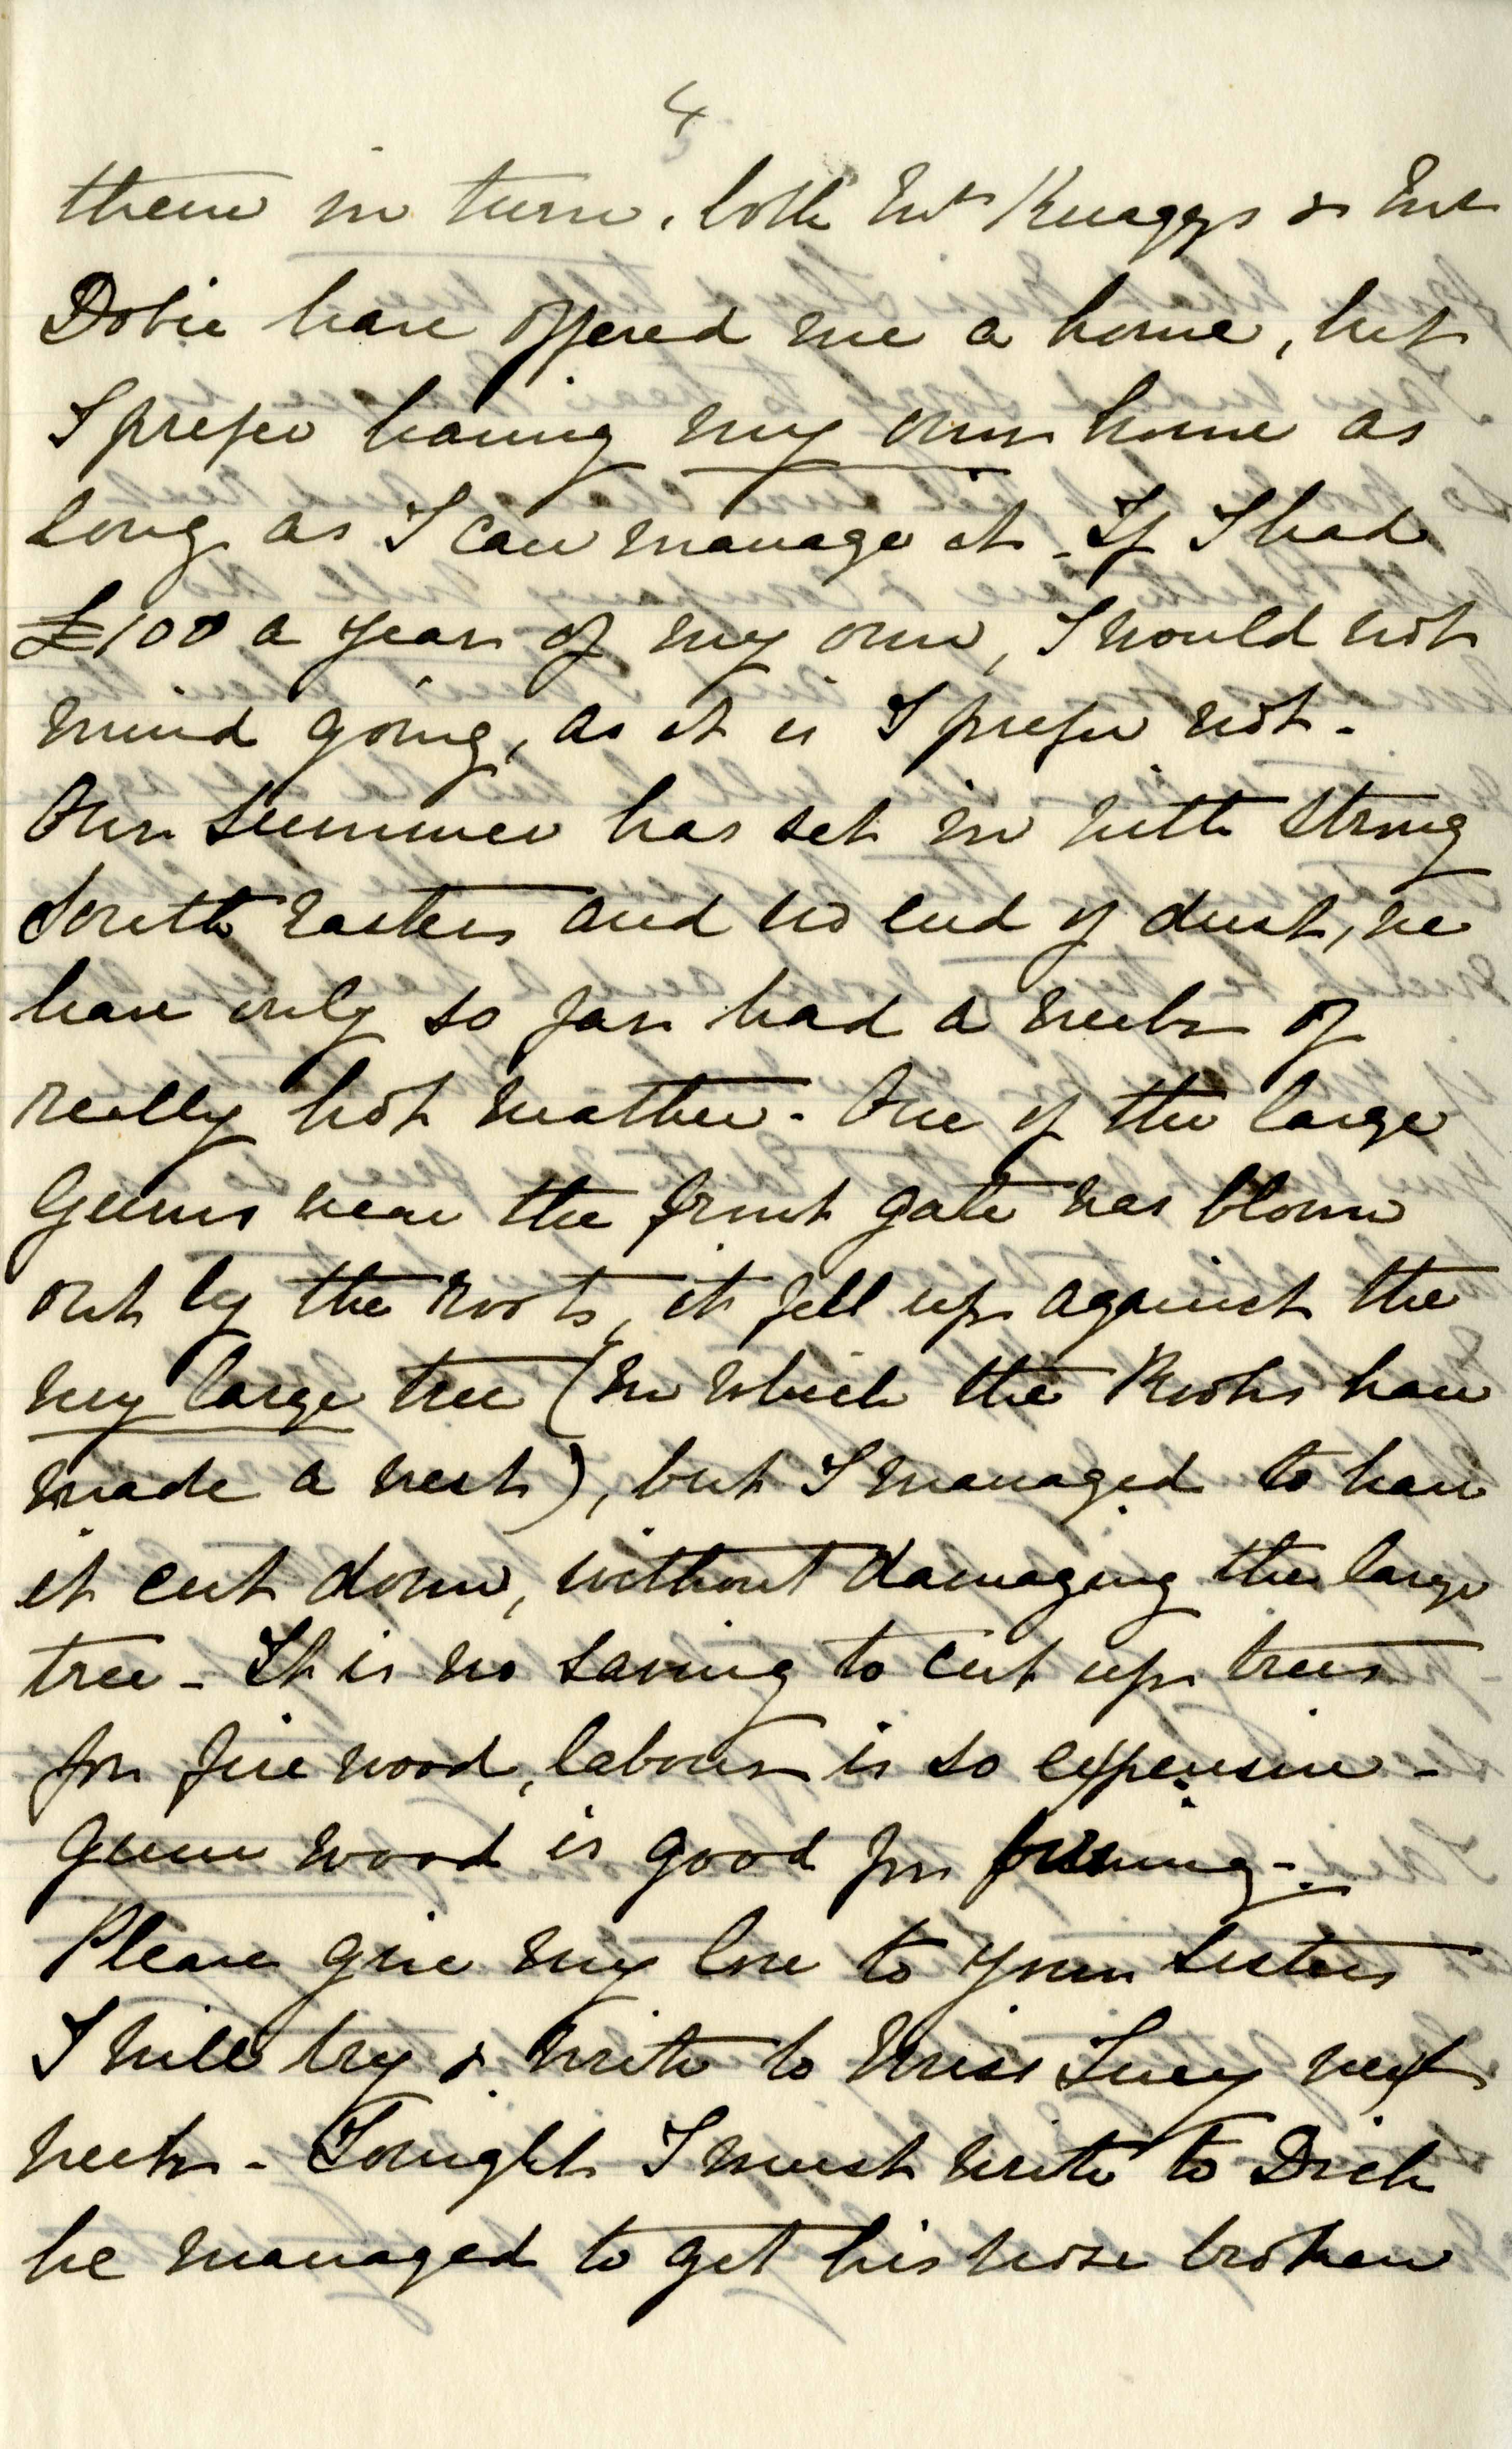 4
them in turn, both Mr Knaggs & Mr
Dobie have offered me a home, but
I prefer having my own home as
long as I can manage it - If I had
£100 a year of my own, I would not
mind going, as it is I prefer not -
Our Summer has set in with strong
South Easters and no end of dust, we
have only so far had a week of
really hot weather - One of the large
Gums near the front gate was blown
out by the roots, it fell up against the
very large tree (in which the Rooks have
made a nest), but I managed to have
it cut down, without damaging the large
tree - It is no saving to cut up trees
for fire wood, labour is so expensive -
Gum wood is good for burning -
Please give my love to your Sisters
I will try & write to Miss Lucy next
week - Tonight I must write to Dick
he managed to get his nose broken